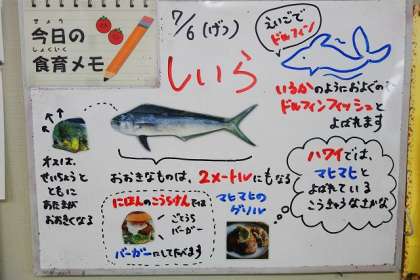 きょう
今日の
しょくいく
食育メモ
7/6(げつ)
しいら
えいごで
ドルフィン
いるかのようにおよぐので
ドルフィンフィッシュと
よばれます
オスは、
せいちょうと
ともに
あたまが
おおきくなる
おおきなものは、2メートルにもなる
にほんのこうちけんでは
ごとうち
バーガー
バーガーにしてたべます
マヒマヒの
グリル
ハワイでは、
マヒマヒと
よばれている
こうきゅうなさかな